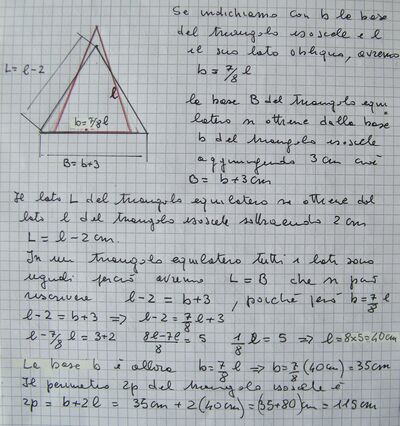 Se indichiamo con b la base
del triangolo isoscele e l
il suo lato obliquo, avremo
b = 7/8 l
L = l - 2
l
b = 7/8 l
B = b+3
la base B del triangolo equi
latero si ottiene dalla base
b del triangolo isoscele
aggiungendo 3 cm cioè
B = b + 3 cm
Il lato L del triangolo equilatero si ottiene dal
lato l del triangolo isoscele sottraendo 2 cm
L = l - 2 cm.
In un triangolo equilatero tutti i lati sono
uguali perciò avremo L = B che si può
riscrivere l - 2 = b + 3 , poichè però b = 7/8 l
l - 2 = b + 3 ⇒ l - 2 = 7/8 l + 3
l - 7/8 l = 3+2 8l-7l/8 = 5 1/8 l = 5 ⇒ l = 8x5 = 40cm
La base b è allora b = 7/8 l ⇒ b = 7/8 (40cm) = 35cm
Il perimetro 2p del triangolo isoscele è
2p = b + 2l = 35cm + 2(40cm) = (35+80)cm = 115cm